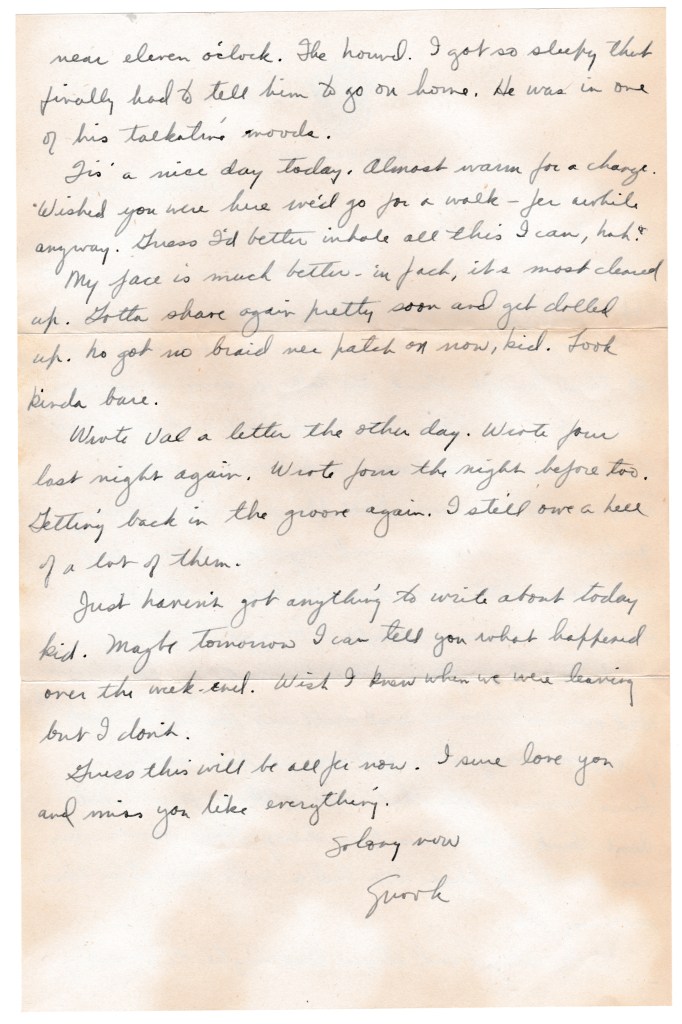 near eleven o'clock. The hound. I got so sleepy that
finally had to tell him to go on home. He was in one
of his talkative moods.
Tis' a nice day today. Almost warm for a change.
Wished you were here we'd go for a walk – fer awhile
anyway. Guess I'd better inhale all this I can, huh?
My face is much better – in fact, its most cleared
up. Gotta shave again pretty soon and get dolled
up. No got no braid ner patch on now, kid. Look
kinda bare.
Wrote Val a letter the other day. Wrote four
last night again. Wrote four the night before too.
Getting back in the groove again. I still owe a hell
of a lot of them.
Just haven't got anything to write about today
kid. Maybe tomorrow I can tell you what happened
over the week-end. Wish I knew when we were leaving
but I don't.
Guess this will be all fer now. I sure love you
and miss you like everything.
So long now